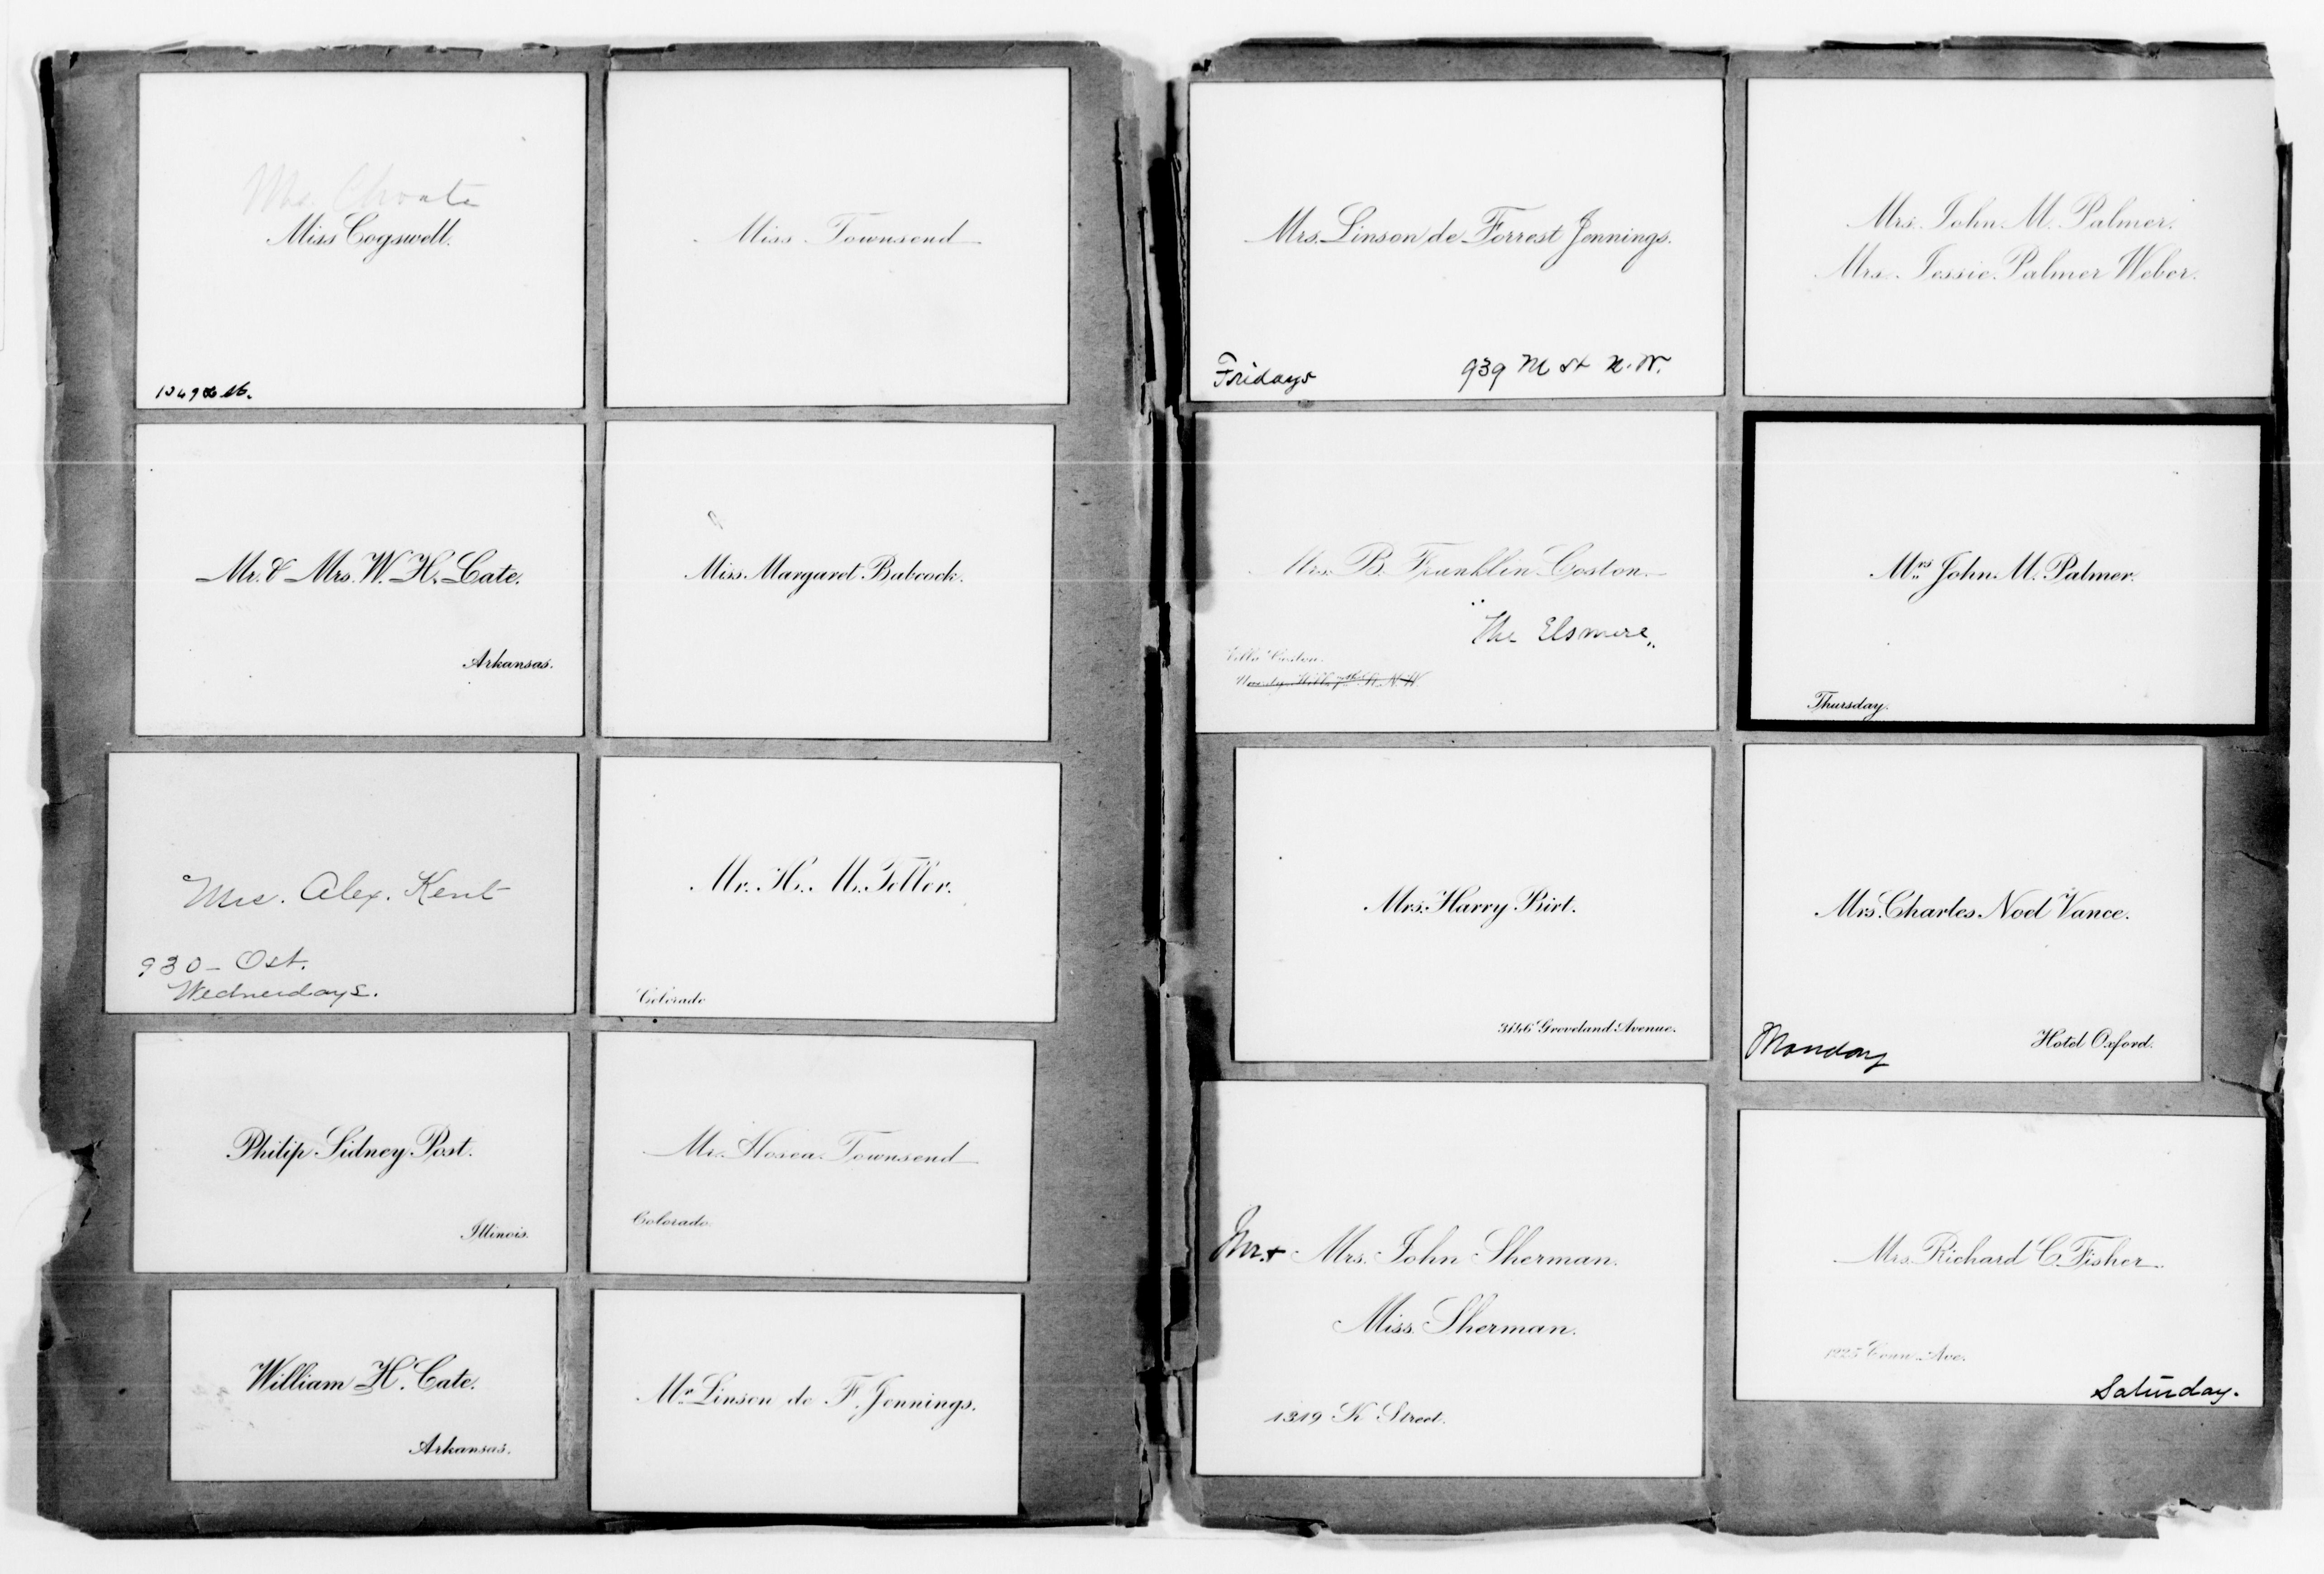 Mrs. Choate
Miss Cogswell.
Miss Townsend
Mr. & Mrs. W. H. Cate.
Arkansas.
Miss Margaret Babcock.
Mrs. Alex. Kent
930 - O st.
Wednesdays.
Mr. H. M. Teller.
Colorado
Philip Sidney Post.
Illinois.
Mr. Hosea Townsend
Colorado.
William H. Cate.
Arkansas.
Mr. Linson de F. Jennings.
Mrs. Linson de Forrest Jennings.
Fridays
939 M st N.W.
Mrs. John M. Palmer.
Mrs. Jessie Palmer Weber.
Mrs. B. Franklin Coston.
"The Elsmere"
Villa Coston.
Mrs John M. Palmer.
Thursday.
Mrs. Harry Birt.
3146 Groveland Avenue.
Mrs. Charles Noel Vance.
Monday
Hotel Oxford.
Mr. + Mrs. John Sherman.
Miss Sherman.
1319 K Street.
Mrs. Richard C. Fisher
Conn. Ave.
Saturday.